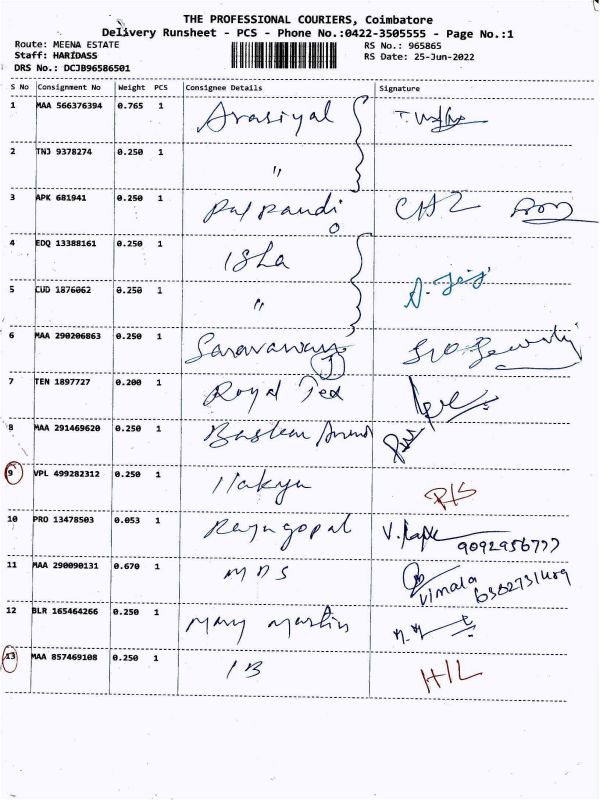 THE PROFESSIONAL COURIERS, Coimbatore
Delivery Runsheet - PCS - Phone No.:0422-3505555 - Page No.:1
Route: MEENA ESTATE RS No.: 965865
Staff: HARIDASS RS Date: 25-Jun-2022
DRS No.: DCJB96586501
S No Consignment No Weight PCS Consignee Details Signature
1 MAA 566376394 0.765 1 Arasiyal
2 TNJ 9378274 0.250 1 "
3 APK 681941 0.250 1 Pal Pandi
4 EDQ 13388161 0.250 1 Isha
5 CUD 1876062 0.250 1 "
6 MAA 290206863 0.250 1 Saravanan
1
7 TEN 1897727 0.200 1 Royal Ted
8 MAA 291469620 0.250 1 Baskar Anand
9 VPL 499282312 0.250 1 R/S
10 PRO 13478503 0.053 1 Rajagopal
11 MAA 290090131 0.670 1 MDS Vimala
12 BLR 165464266 0.250 1 Mary Martin
13 MAA 857469108 0.250 1 IB H/L